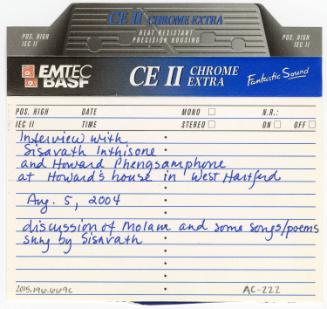 CE II CHROME EXTRA
POS. HIGH
IEC II
HEAT RESISTANT
PRECISION HOUSING
POS. HIGH
IEC II
EMTEC
BASF
CE II CHROME
EXTRA
Fantastic Sound
POS. HIGH DATE MONO N.R.:
IEC II TIME STEREO ON OFF
Interview with
Sisavath Inthisone
and Howard Phengsamphone
at Howard's house in West Hartford
Aug. 5, 2004
discussion of Molam and some songs/poems
sung by Sisavath
2015.196.669c
AC-222